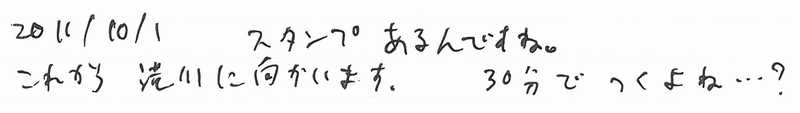 2011/10/1 スタンプ あるんですね。
これから 滝川に向かいます. 30分で つくよね…?